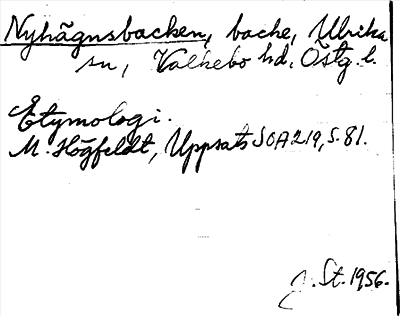 Nyhägnsbacken, backe, Ulrika
sn, Valkebo hd, Östg. l.
Etymologi.
M. Högfeldt, Uppsats SOA 219, s. 81.
J. St. 1956.